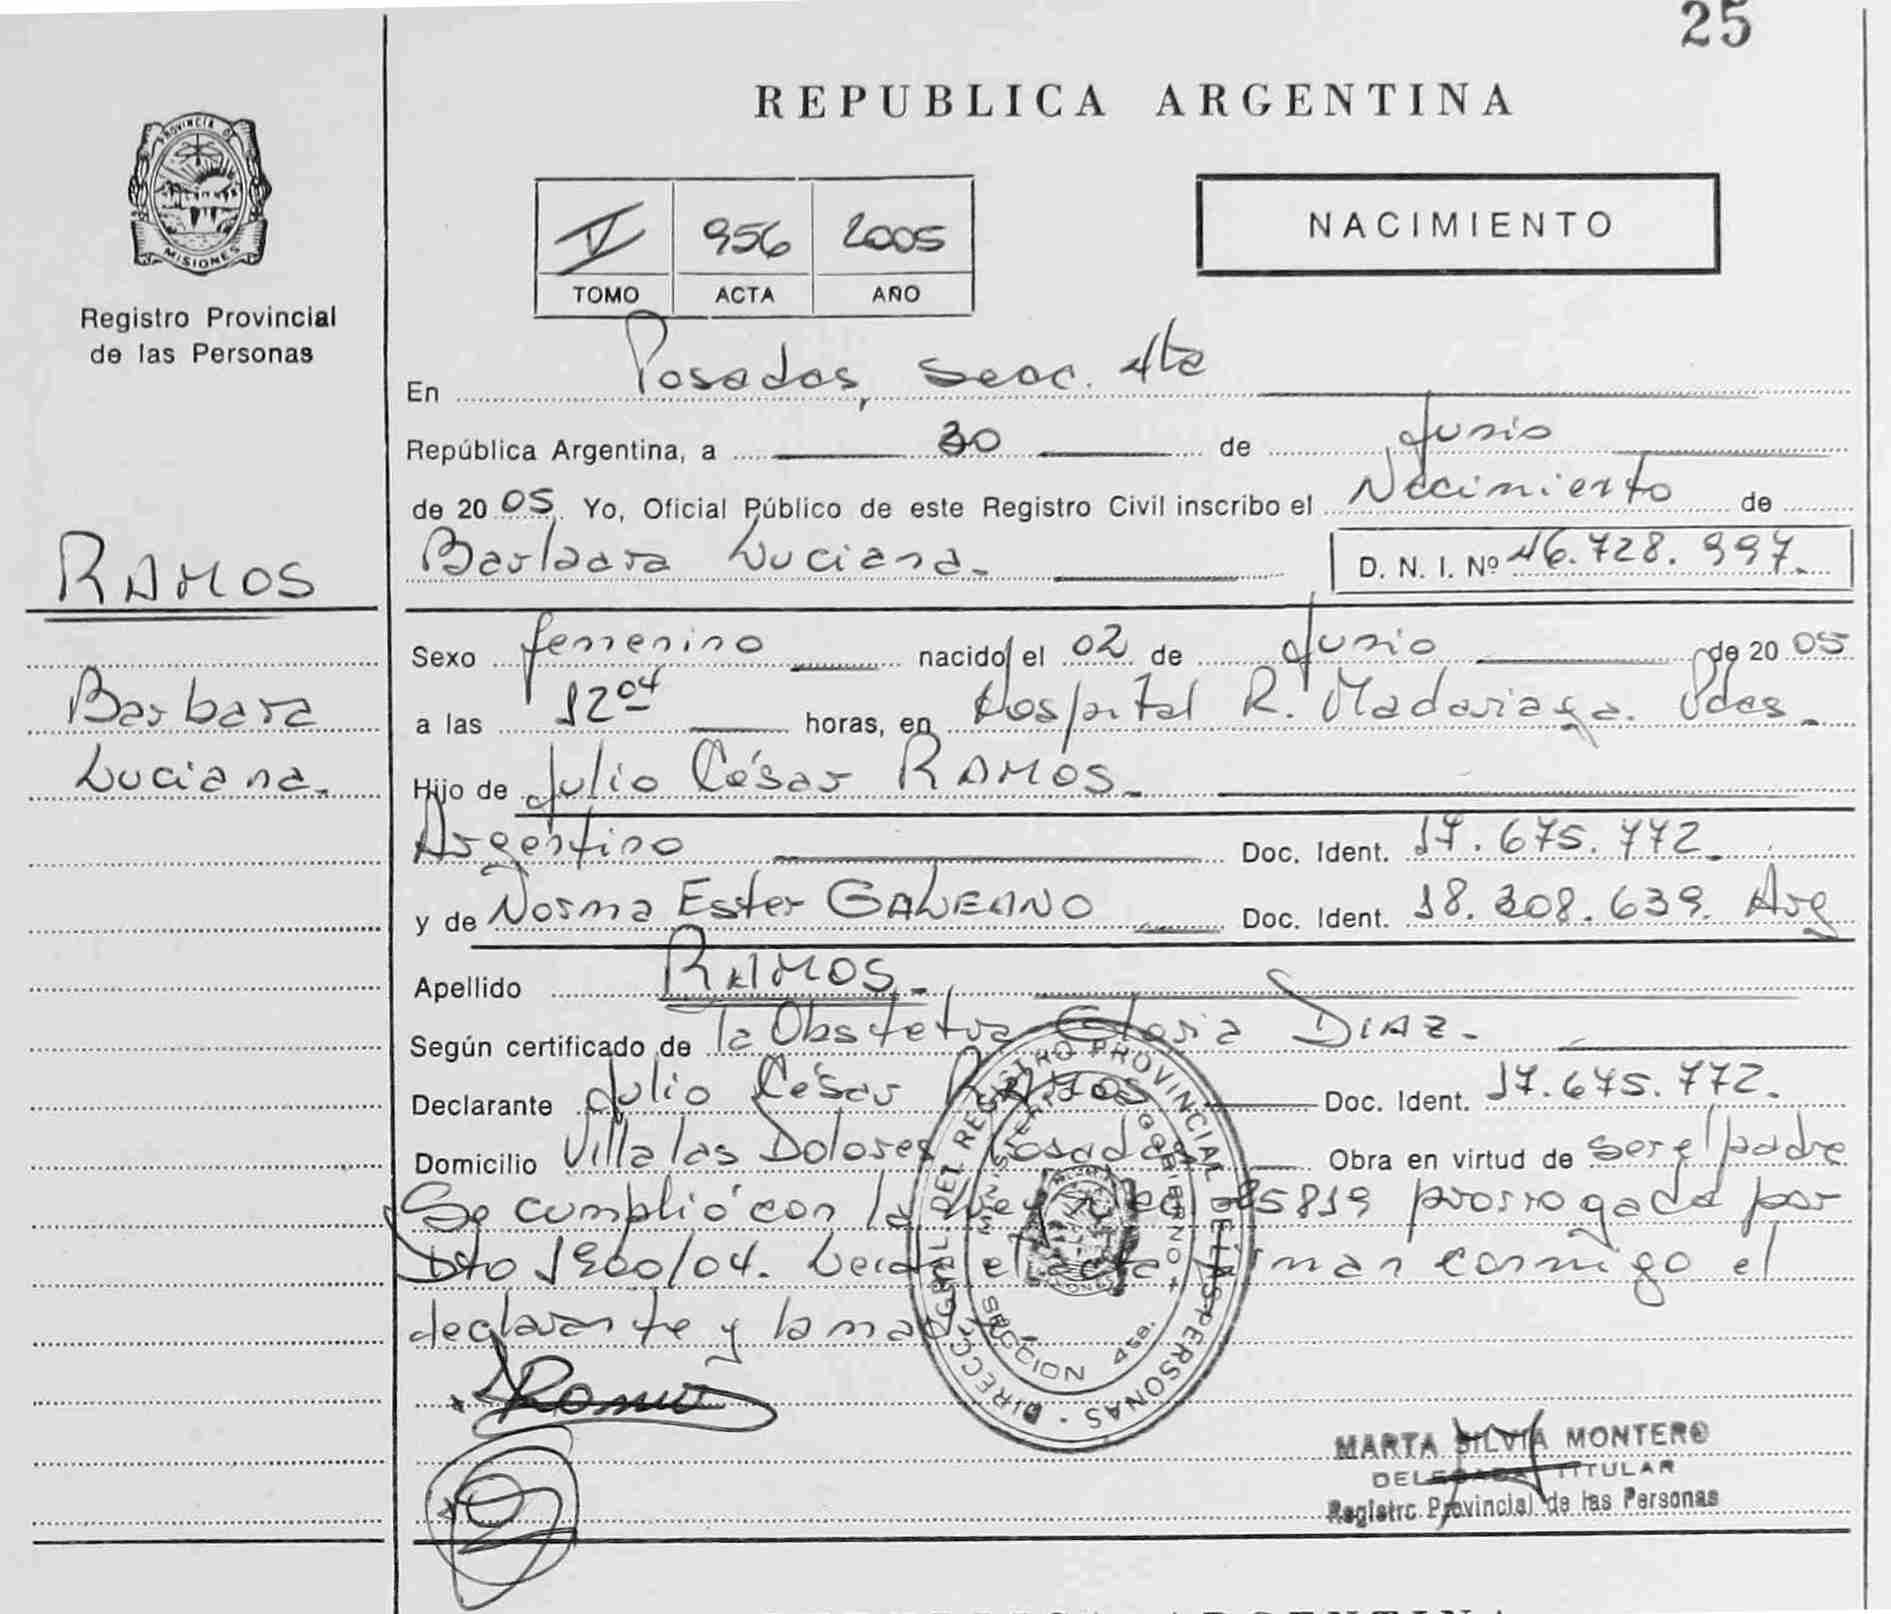 25
REPUBLICA ARGENTINA
PROVINCIA DE
MISIONES
Registro Provincial
de las Personas
V 956 2005
TOMO ACTA AÑO
NACIMIENTO
En Posadas, Secc. 4ta
República Argentina, a 30 de Junio
de 2005. Yo, Oficial Público de este Registro Civil inscribo el Nacimiento de
Barbara Luciana. D. N. I. Nº 46.728.997.
RAMOS
Barbara
Luciana.
Sexo femenino nacido el 02 de Junio de 2005
a las 12 04 horas, en Hospital R. Madariaga. Pdas.
Hijo de Julio César RAMOS.
Argentino Doc. Ident. 17.675.772.
y de Norma Ester GALEANO Doc. Ident. 18.208.639. Arg
Apellido RAMOS.
Según certificado de la Obstetra Gloria DIAZ.
Declarante Julio César RAMOS Doc. Ident. 17.675.772.
Domicilio Villa las Dolores Posadas Obra en virtud de ser el padre
Se cumplió con la Ley 25819 prorrogada por
Dto 1900/04. Leida el acta firman conmigo el
declarante y la madre
DIRECC. GRAL. DEL REGISTRO PROVINCIAL DE LAS PERSONAS
MINISTERIO DE GOBIERNO
SECCION 4ta.
MARTA SILVIA MONTERO
DELEGADA TITULAR
Registro Provincial de las Personas